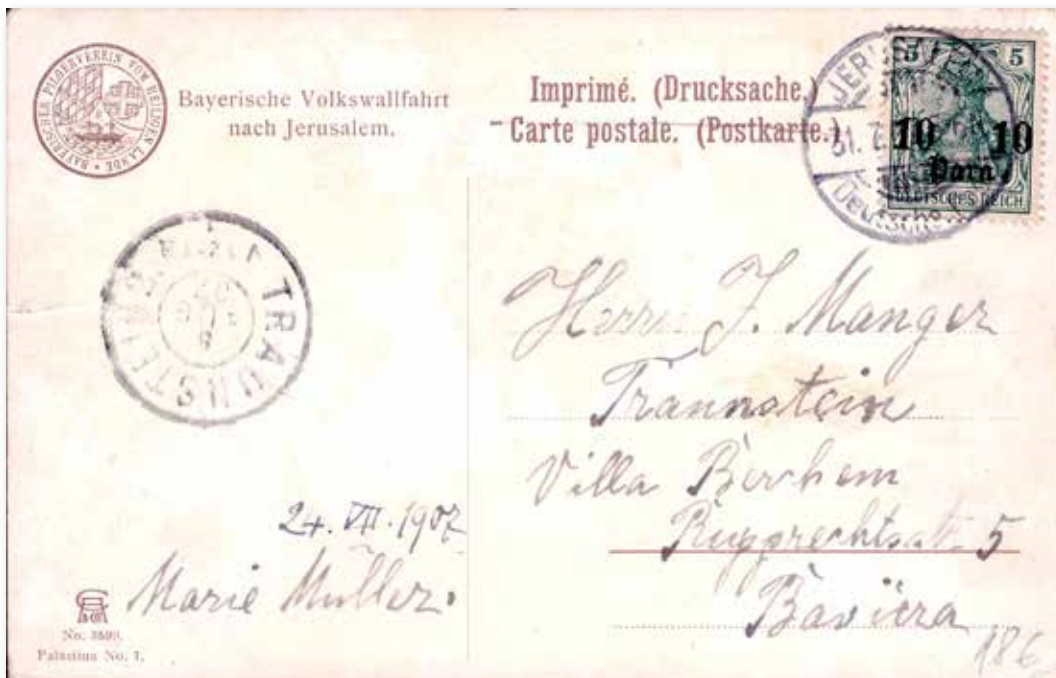 BAYERISCHER PILGERVEREIN VOM HEILIGEN LANDE
Bayerische Volkswallfahrt
nach Jerusalem.
Imprimé. (Drucksache.)
Carte postale. (Postkarte.)
JERUSALEM
31. 7.
Deutsche
5 5
10 10
Para
DEUTSCHES REICH
TRAUNSTEIN
Herrn J. Manger
Traunstein
Villa Berchem
Rupprechtsstr. 5
Baviera
24. VII. 1907
Marie Müller.
No.
Palästina No. 7.
186